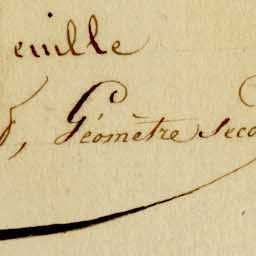 euille
, Géomètre seco